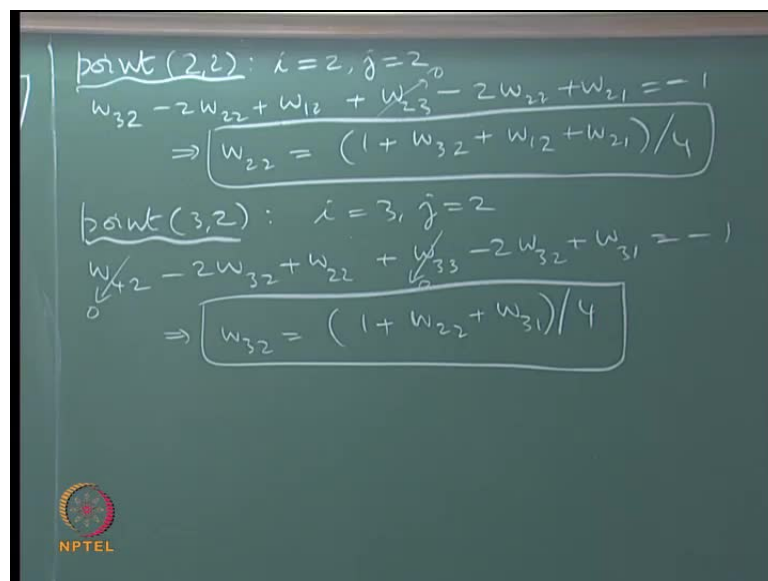 point (2,2): i=2, j=2
w₃₂ - 2w₂₂ + w₁₂ + w₂₃ → 0 - 2w₂₂ + w₂₁ = -1
⇒ w₂₂ = (1 + w₃₂ + w₁₂ + w₂₁)/4
point (3,2): i=3, j=2
w₄₂ → 0 - 2w₃₂ + w₂₂ + w₃₃ → 0 - 2w₃₂ + w₃₁ = -1
⇒ w₃₂ = (1 + w₂₂ + w₃₁)/4
NPTEL